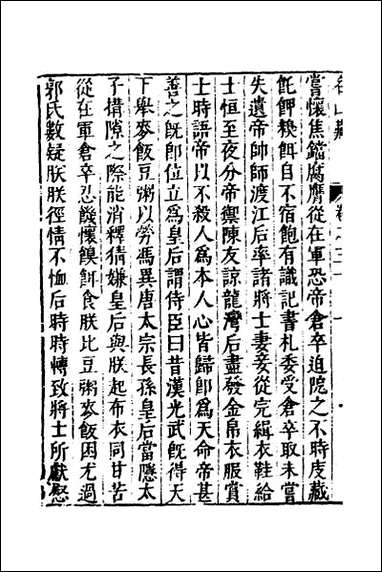 嘗懷焦鐺腐膺從在軍恐帝倉卒迫隘之不時庋藏
飥餌糗餌自不宿飽有識記書札委受倉卒取未嘗
失遺帝帥師渡江后率諸將士妻妾從完緝衣鞋給
士恒至夜分帝禦陳友諒龍灣后盡發金帛衣服賞
士時語帝以不殺人為本人心皆歸即為天命帝甚
善之旣即位立為皇后謂侍臣曰昔漢光武旣得天
下舉麥飯豆粥以勞馮異唐太宗長孫皇后當隱太
子搆隙之際能消釋猜嫌皇后與朕起布衣同甘苦
從在軍倉卒忍饑懷糗餌食朕比豆粥麥飯困尤過
郭氏數疑朕朕徑情不恤后時時轉致將士所獻慰